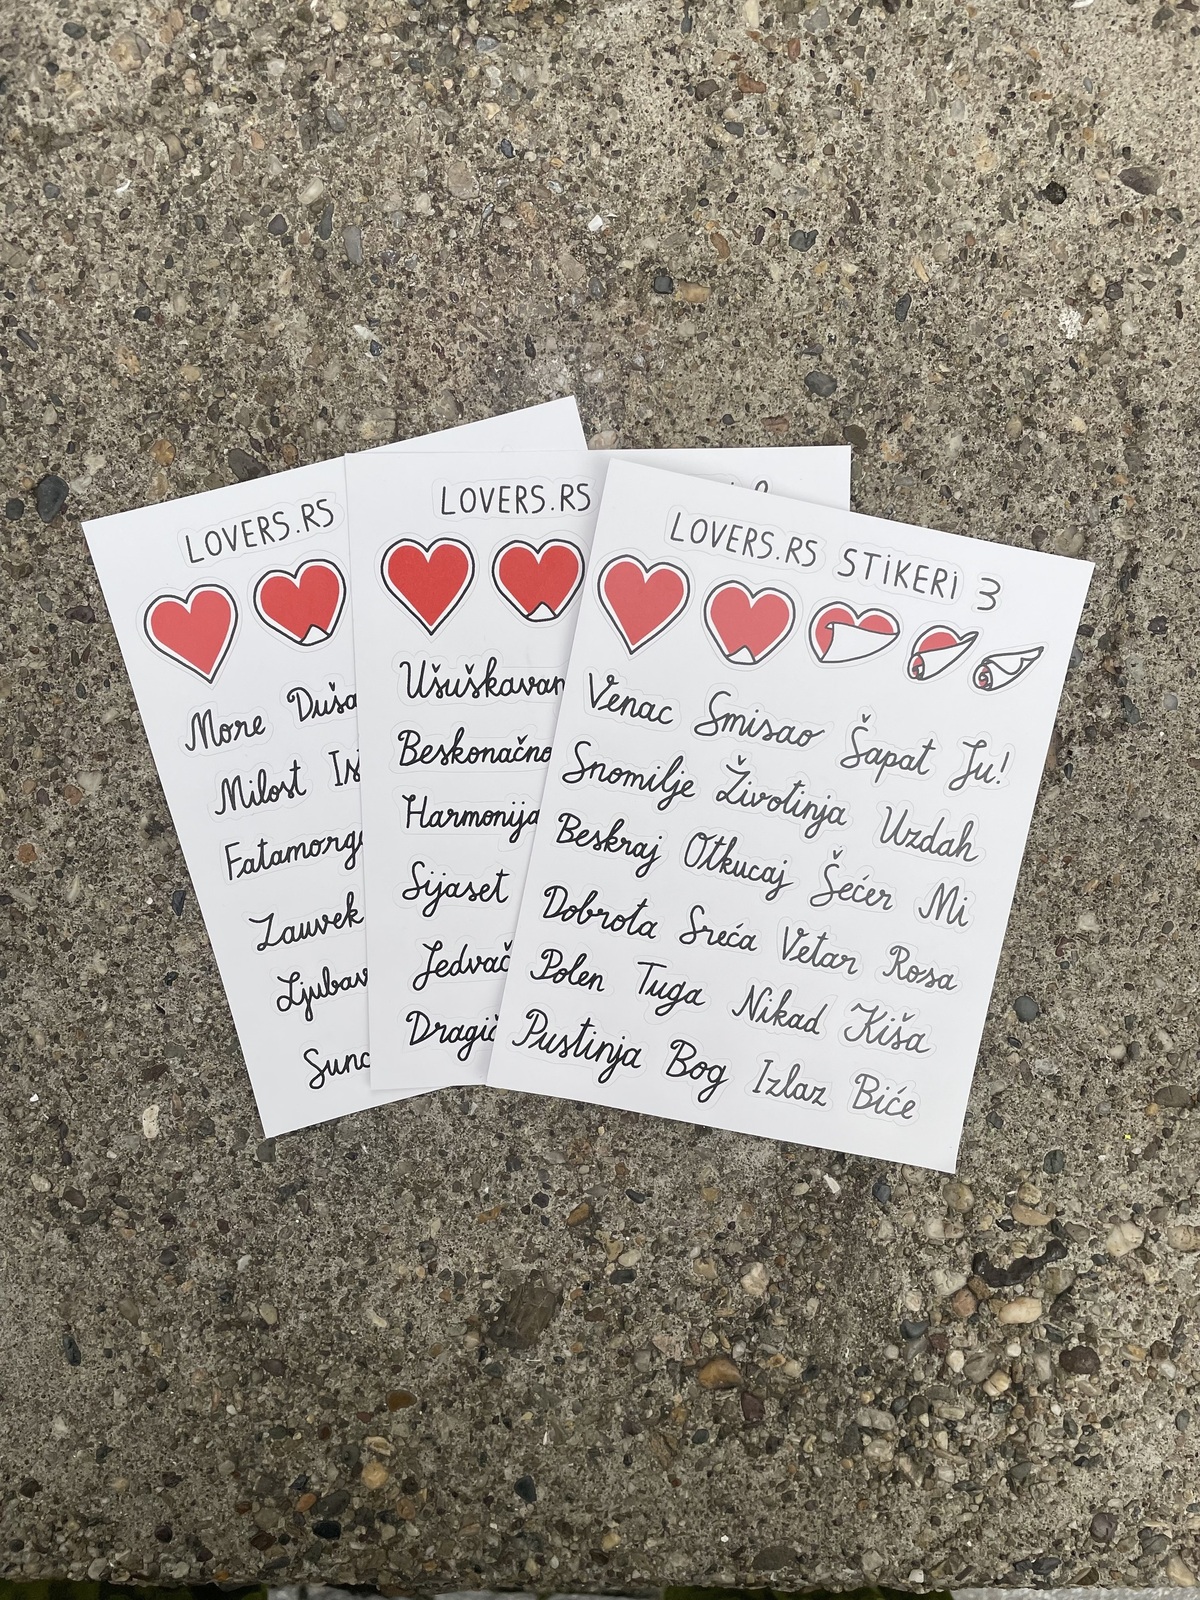 LOVERS.RS
More Duša
Milost
Fatamorga
Zauvek
Ljubav
Sunc
LOVERS.RS
Ušuškavan
Beskonačno
Harmonija
Sijaset
Jedvač
Dragič
LOVERS.RS STiKERi 3
Venac Smisao Šapat Ju!
Snomilje Životinja Uzdah
Beskraj Otkucaj Šećer Mi
Dobrota Sreća Vetar Rosa
Polen Tuga Nikad Kiša
Pustinja Bog Izlaz Biće